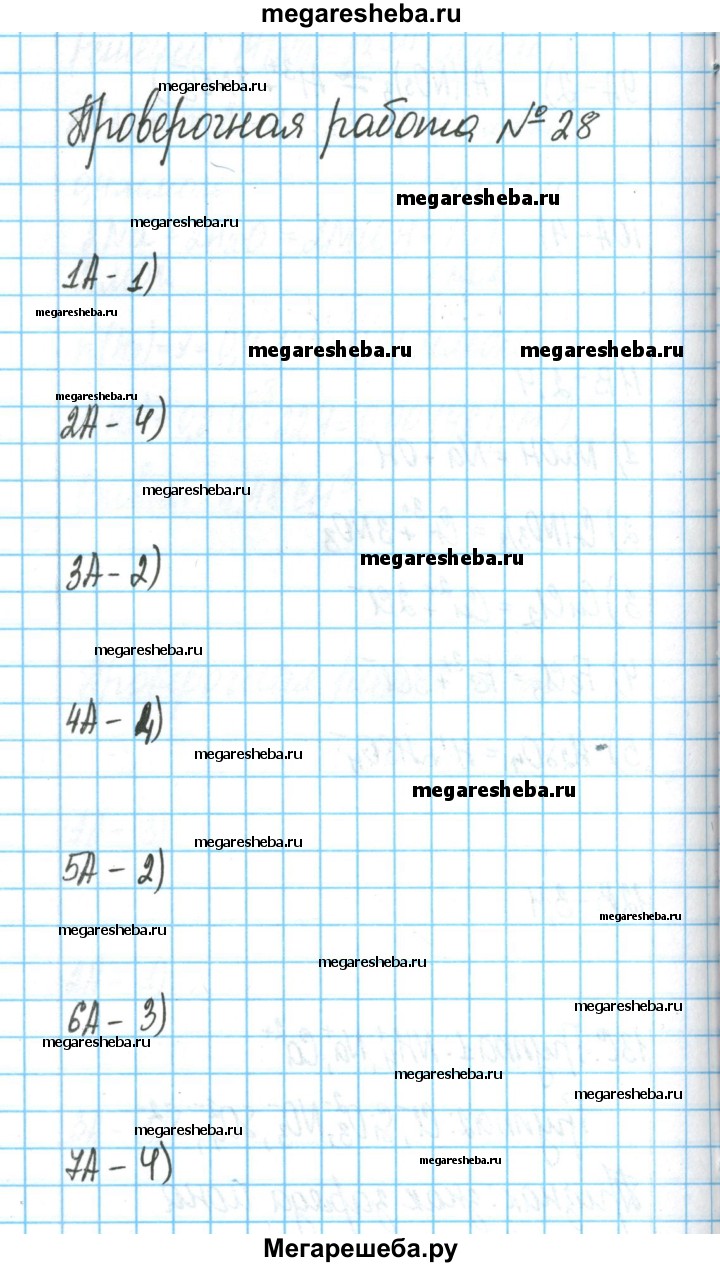 megaresheba.ru
megaresheba.ru
Проверочная работа № 28
megaresheba.ru
megaresheba.ru
1А - 1)
megaresheba.ru
megaresheba.ru megaresheba.ru
megaresheba.ru
2А - 4)
megaresheba.ru
megaresheba.ru
3А - 2)
megaresheba.ru
4А - 4)
megaresheba.ru
megaresheba.ru
megaresheba.ru
5А - 2)
megaresheba.ru
megaresheba.ru
megaresheba.ru
megaresheba.ru
6А - 3)
megaresheba.ru
megaresheba.ru
megaresheba.ru
megaresheba.ru
megaresheba.ru
7А - 4)
Мегарешеба.ру